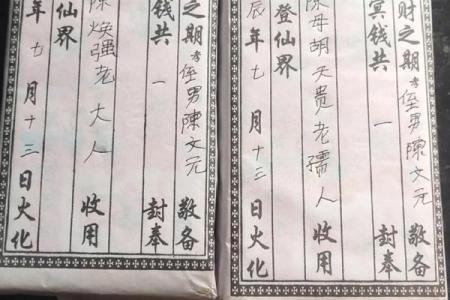 财之期侄男陳文元敬备
冥钱共一封奉
陳母胡天贵老孺人收用
登仙界
辰年七月十三日火化
之期侄男陳文元敬备
钱共一封奉
陳焕强老大人收用
仙界
年七月十三日火化